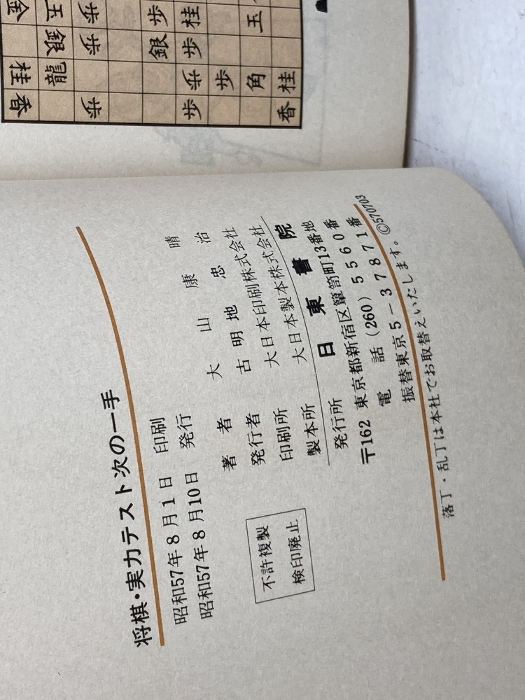 将棋・実力テスト次の一手
昭和57年8月1日 印刷
昭和57年8月10日 発行
不許複製
検印廃止
著者 大山康晴
発行者 古明地忠治
印刷所 大日本印刷株式会社
製本所 大日本製本株式会社
発行所 日東書院
〒162 東京都新宿区簞笥町13番地
電話(260)5560番
振替東京5-37871番
©570703
落丁・乱丁は本社でお取替えいたします。